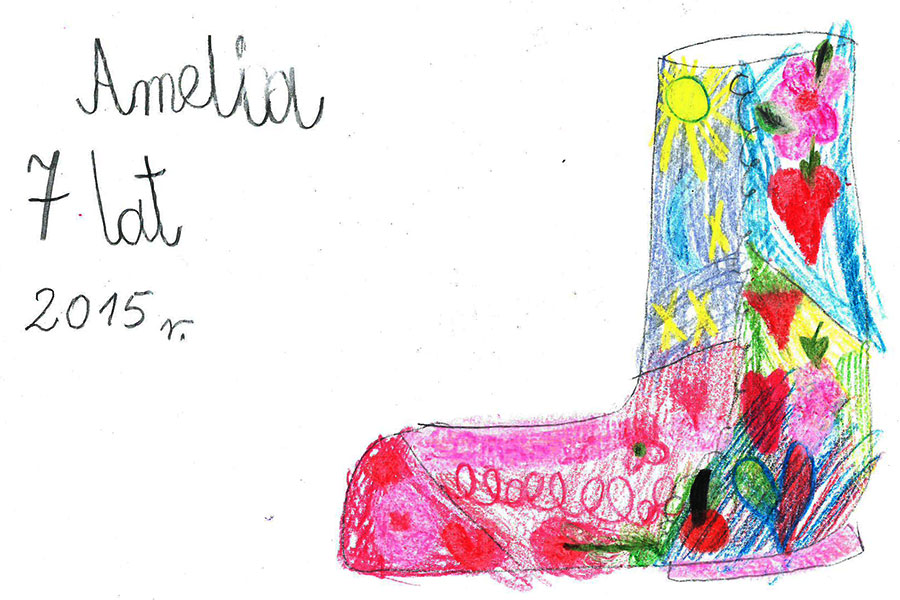 Amelia
7 lat
2015 r.